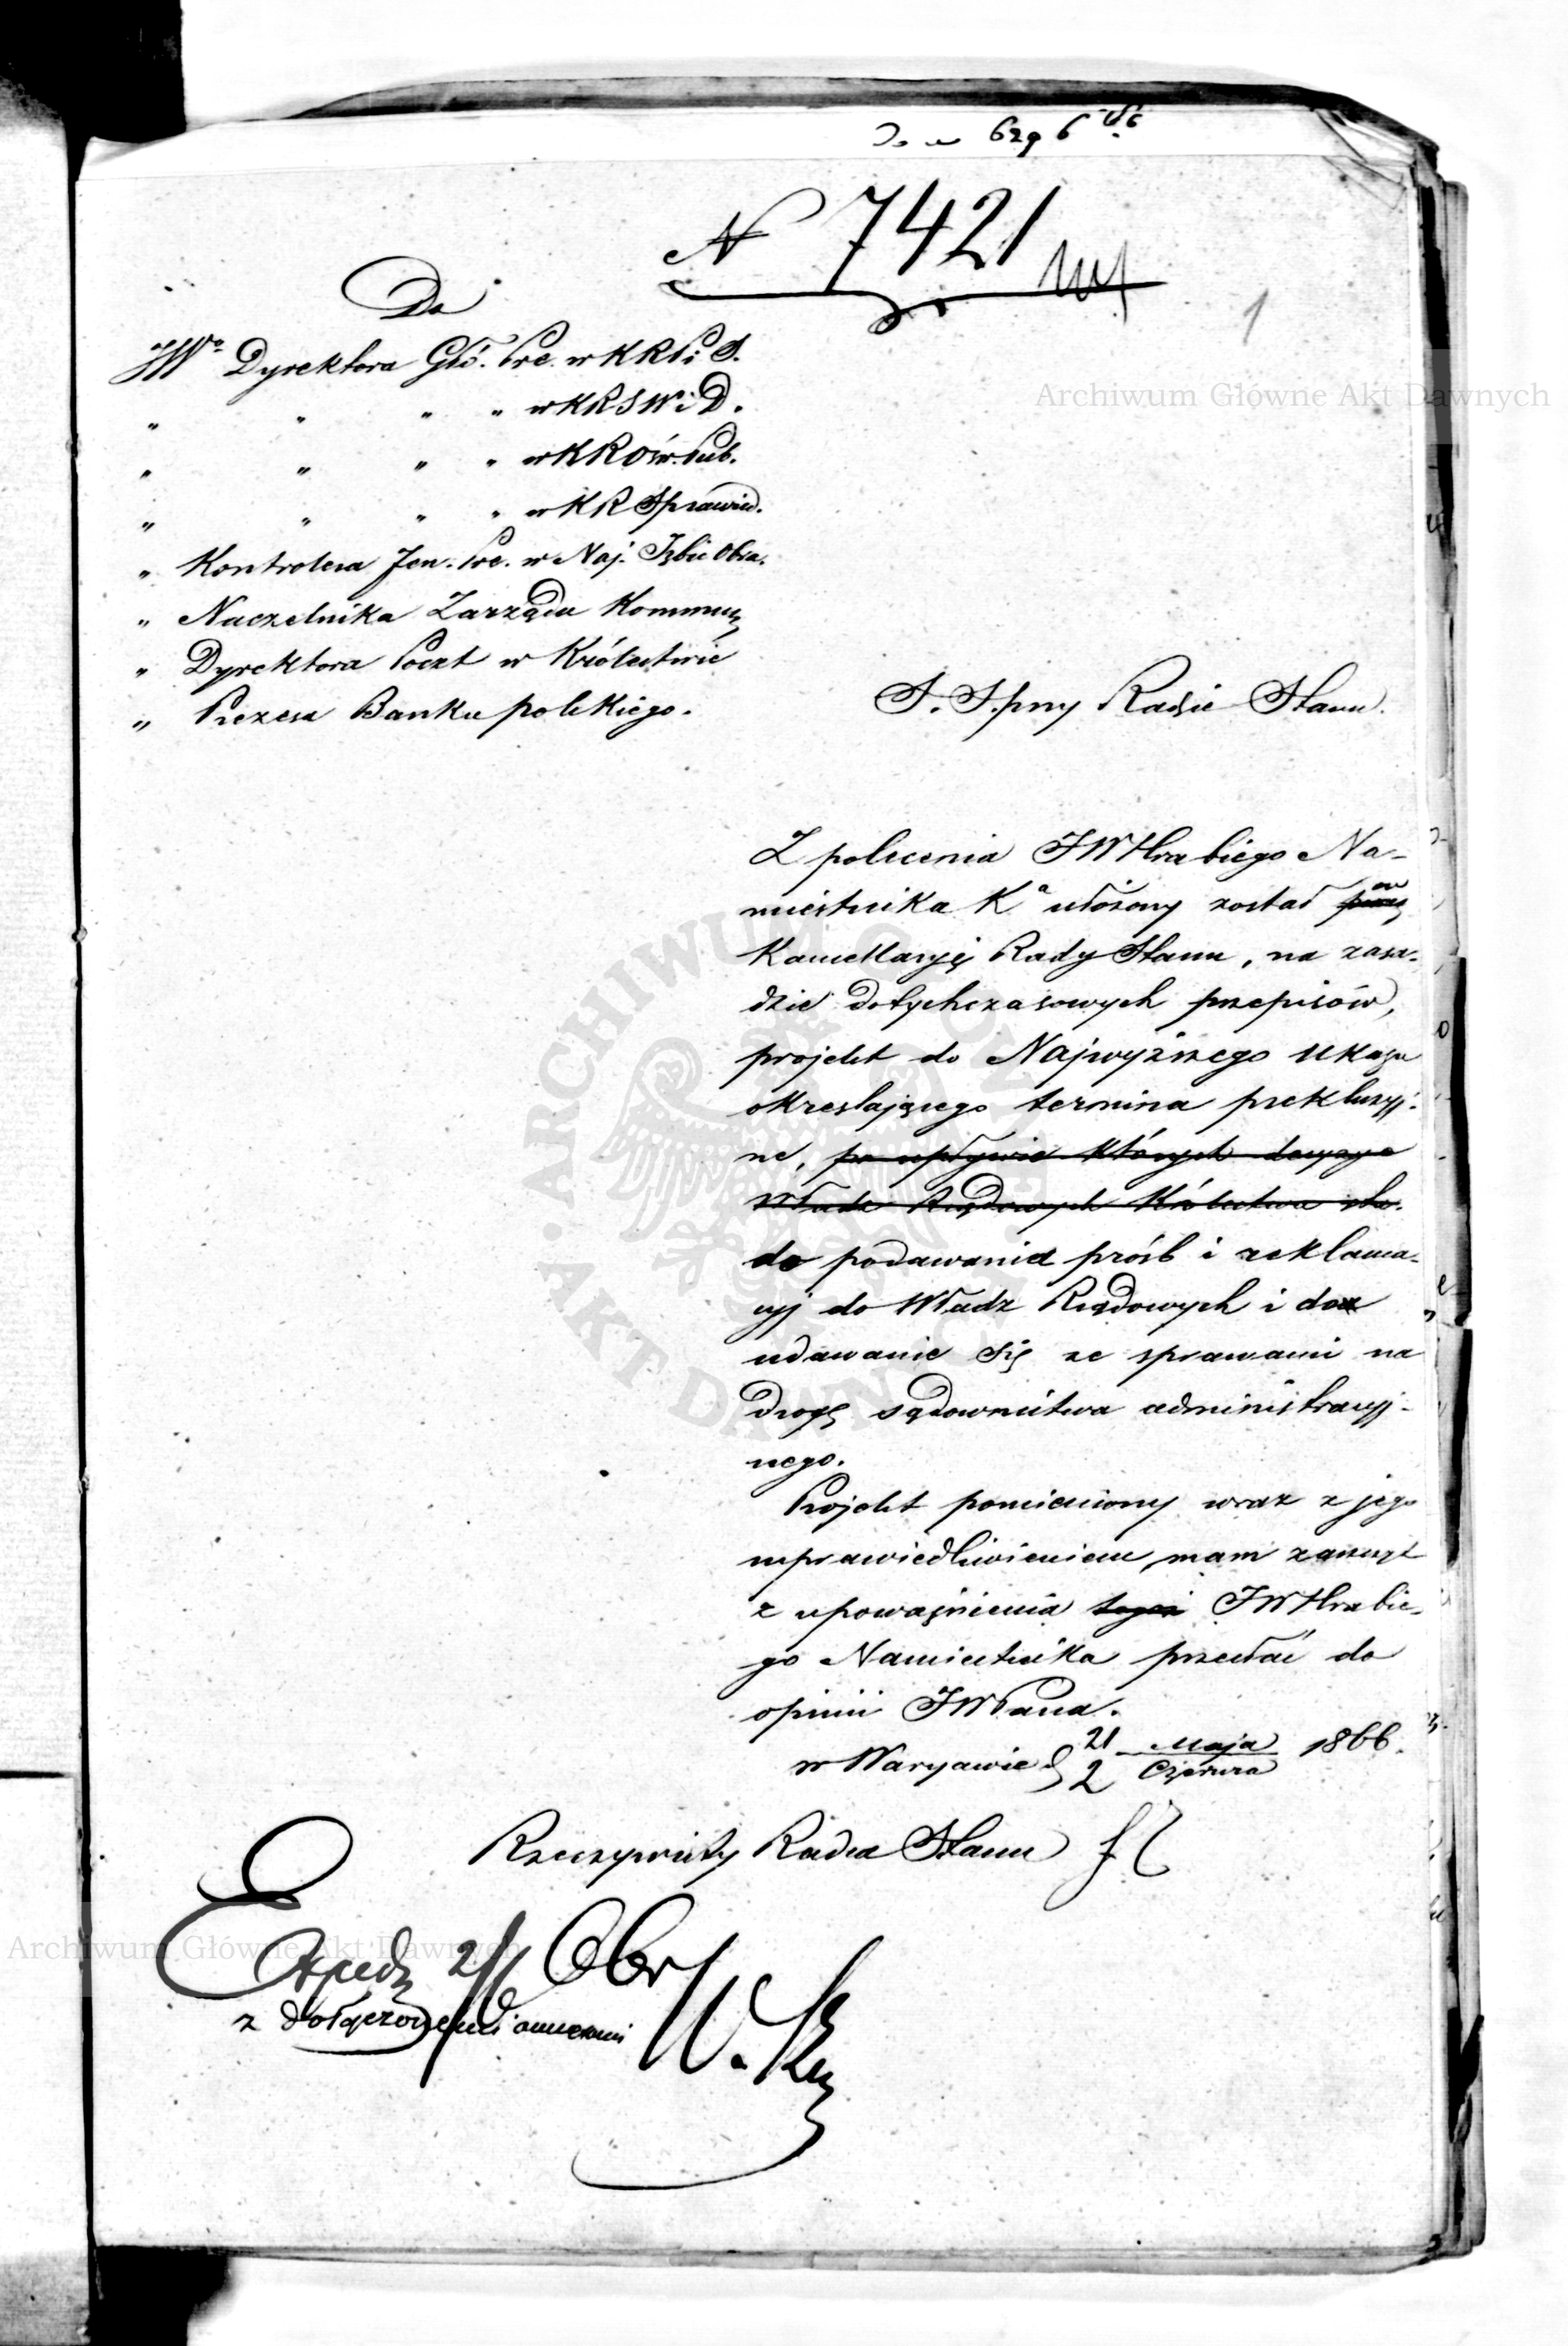 N 7421
1
Do
JWº Dyrektora Głó. Pre. w KRPiS.
" " " " w KRSWiD.
" " " " w KROśw. Pub.
" " " " w KR Sprawied.
" Kontrolera Jen. Pre. w Naj. Izbie Obra.
" Naczelnika Zarządu Kommun
" Dyrektora Poczt w Królestwie
" Prezesa Banku polskiego.
S. S.pny Radzie Stanu.
Z polecenia JWHrabiego Na-
miestnika Kª ułożony został przez w
Kancellaryę Rady Stanu, na zasa-
dzie dotychczasowych przepisów,
projekt do Najwyższego Ukazu
określającego termina prekluzyj-
ne, po upływie których decyzye
Władz Rządowych Królestwa sta-
do podawania próśb i reklama-
cyj do Władz Rządowych i do
udawanie się ze sprawami na
drogę sądownictwa administracyj-
nego.
Projekt pomieniony wraz z jego
usprawiedliwieniem, mam zaszczyt
z upoważnienia tegoż JWHrabie-
go Namiestnika przesłać do
opinii JWPana.
w Warszawie d 21 Maja / 2 Czerwca 1866.
Rzeczywisty Radca Stanu
Exped 2/
z dołączonemi
Archiwum Główne Akt Dawnych
Archiwum Główne Akt Dawnych
ARCHIWUM GŁÓWNE · AKT DAWNYCH ·